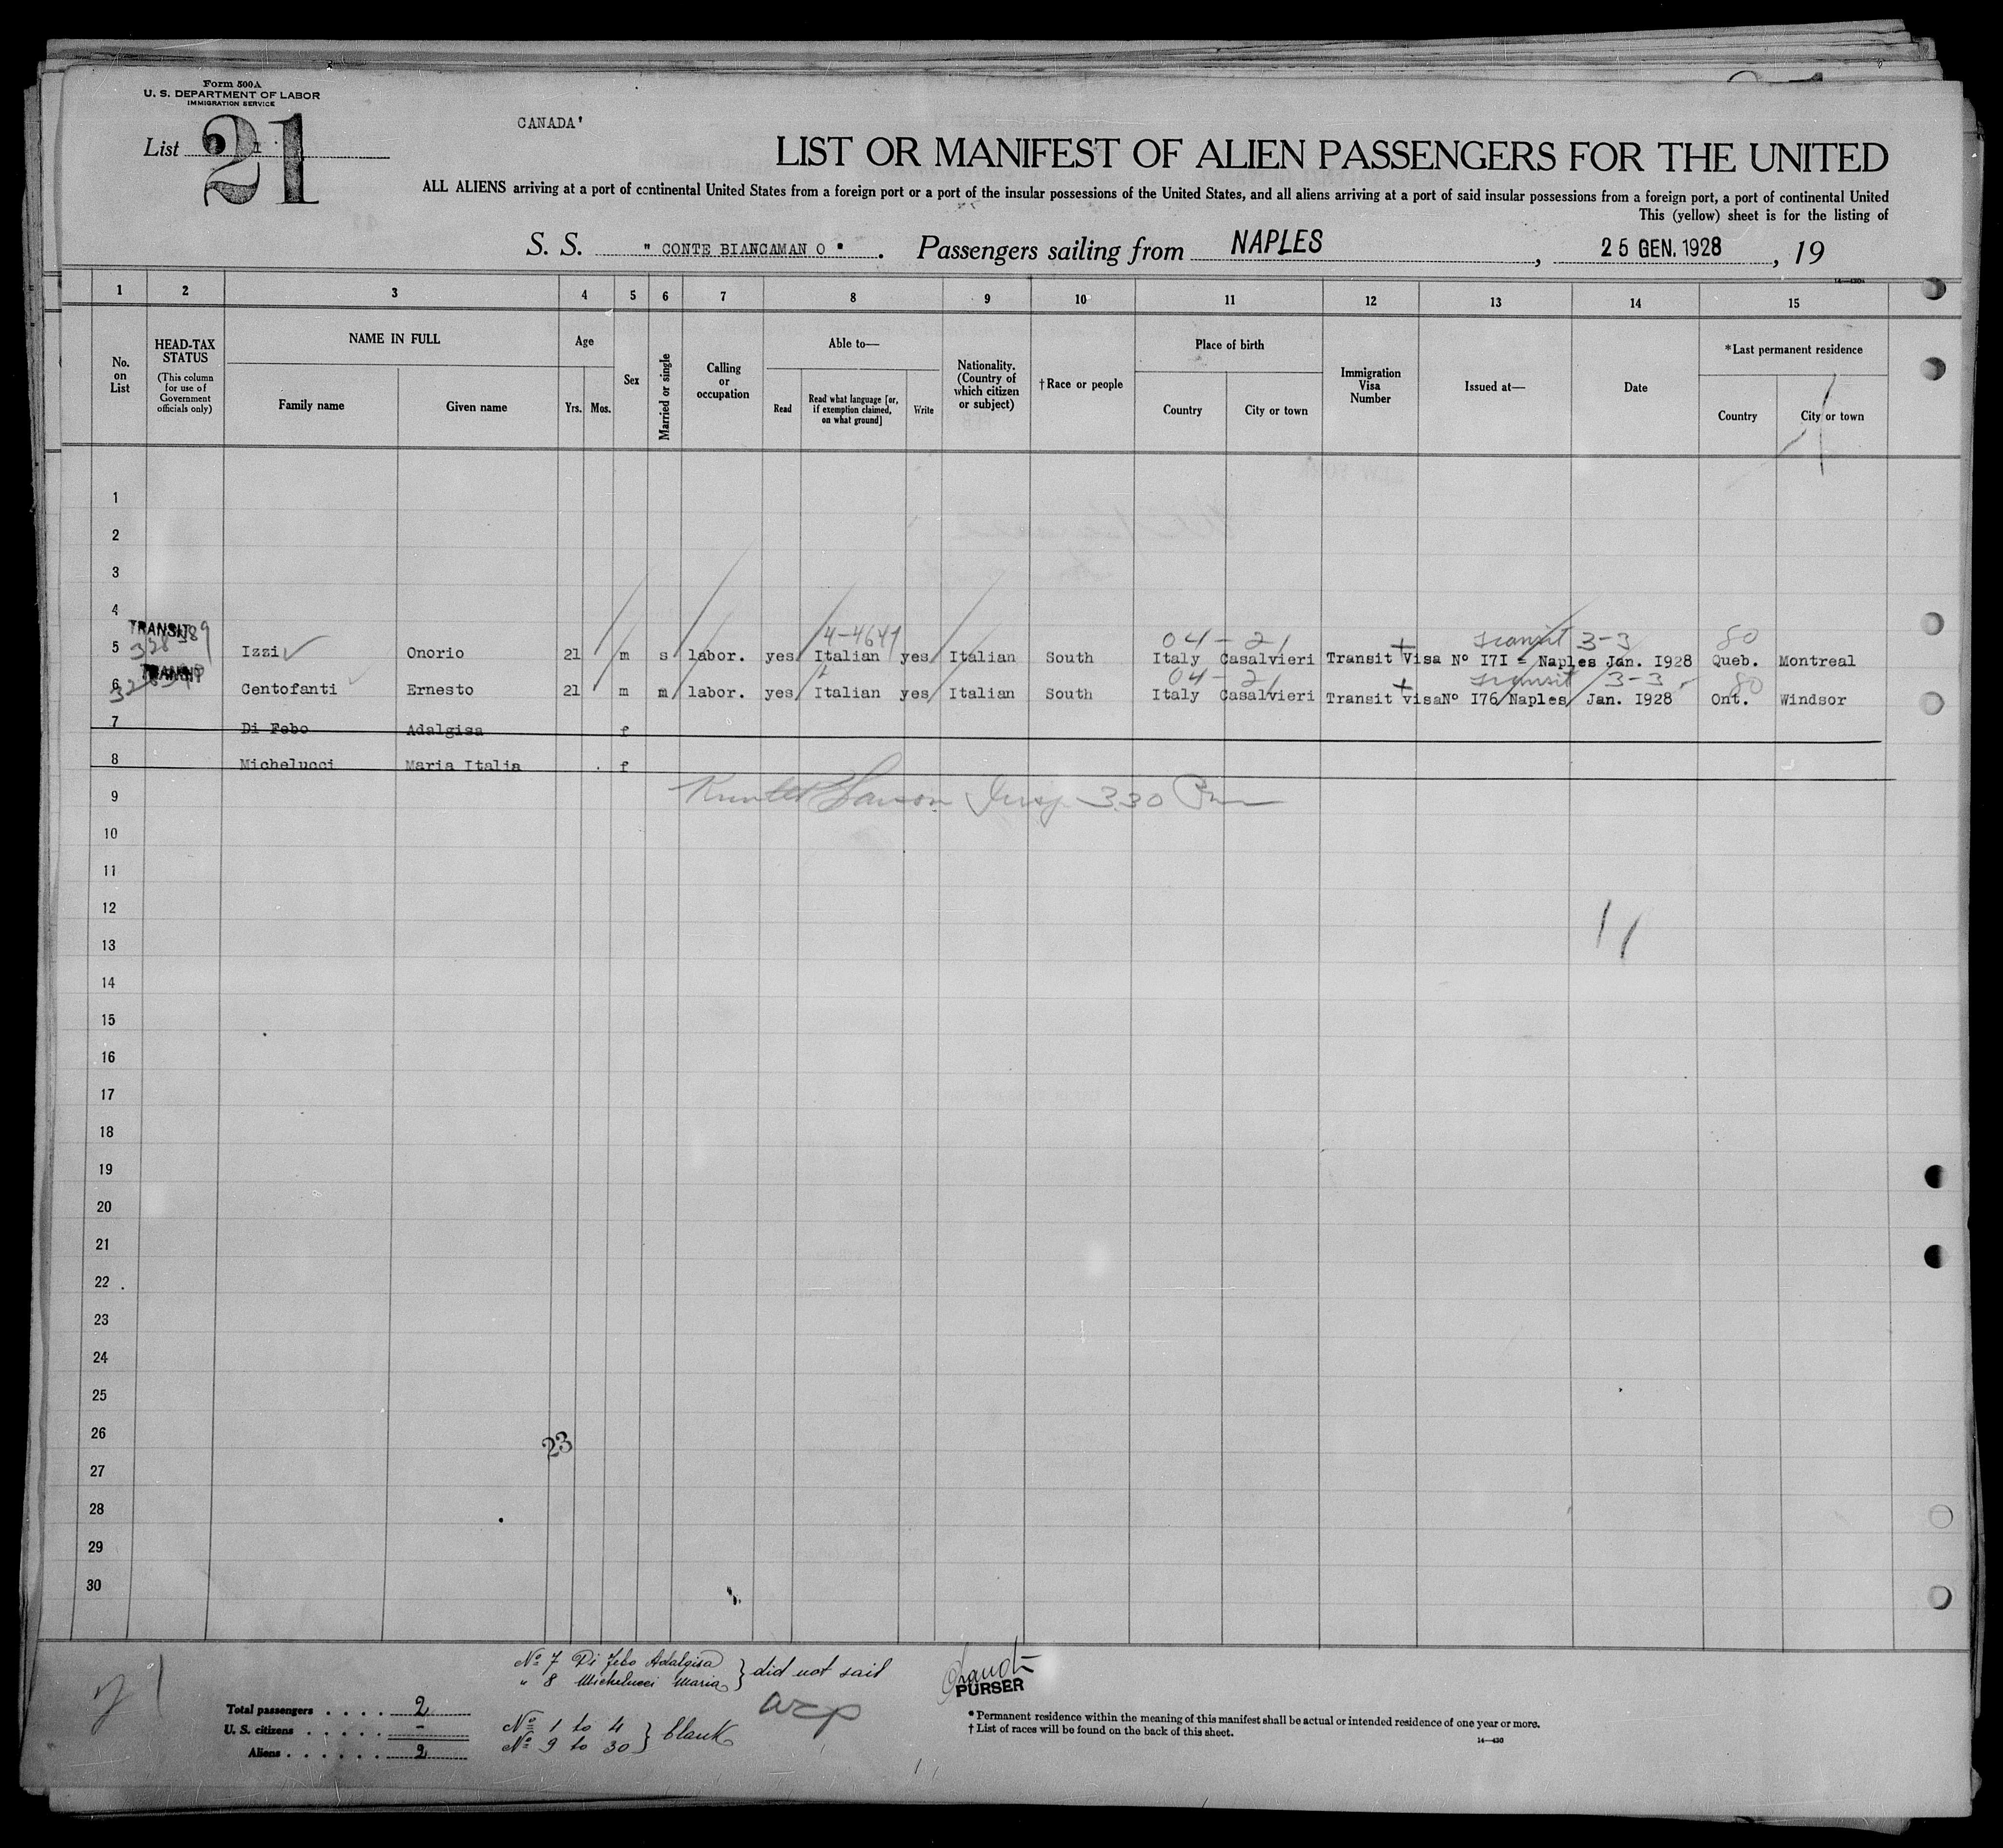 Form 500A
U. S. DEPARTMENT OF LABOR
IMMIGRATION SERVICE
List 21
CANADA'
LIST OR MANIFEST OF ALIEN PASSENGERS FOR THE UNITED
ALL ALIENS arriving at a port of continental United States from a foreign port or a port of the insular possessions of the United States, and all aliens arriving at a port of said insular possessions from a foreign port, a port of continental United
This (yellow) sheet is for the listing of
S. S. " CONTE BIANCAMAN O " . Passengers sailing from NAPLES , 25 GEN. 1928 , 19
1 2 3 4 5 6 7 8 9 10 11 12 13 14 15
No. on List
HEAD-TAX STATUS
(This column for use of Government officials only)
NAME IN FULL
Family name
Given name
Age
Yrs.
Mos.
Sex
Married or single
Calling or occupation
Able to—
Read
Read what language [or, if exemption claimed, on what ground]
Write
Nationality. (Country of which citizen or subject)
†Race or people
Place of birth
Country
City or town
Immigration Visa Number
Issued at—
Date
*Last permanent residence
Country
City or town
1
2
3
4
TRANSIT 4-4647 04 - 21 transit 3-3 80
5 Izzi Onorio 21 m s labor. yes Italian yes Italian South Italy Casalvieri Transit Visa Nº I7I = Naples Jan. I928 Queb. Montreal
TRANSIT 04 - 21 transit 3-3 80
6 Centofanti Ernesto 21 m m labor. yes Italian yes Italian South Italy Casalvieri Transit visaNº I76 Naples Jan. I928 Ont. Windsor
7 Di Febo Adalgisa f
8 Michelucci Maria Italia f
9 Insp 3.30 Pm
10
11
12
13
14
15
16
17
18
19
20
21
22
23
24
25
26
23
27
28
29
30
Nº 7 Di Febo Adalgisa } did not sail
" 8 Michelucci Maria
PURSER
Total passengers . . . . 2
U. S. citizens . . . . . -
Aliens . . . . . . 2
Nº 1 to 4 } blank
Nº 9 to 30
* Permanent residence within the meaning of this manifest shall be actual or intended residence of one year or more.
† List of races will be found on the back of this sheet.
14—430